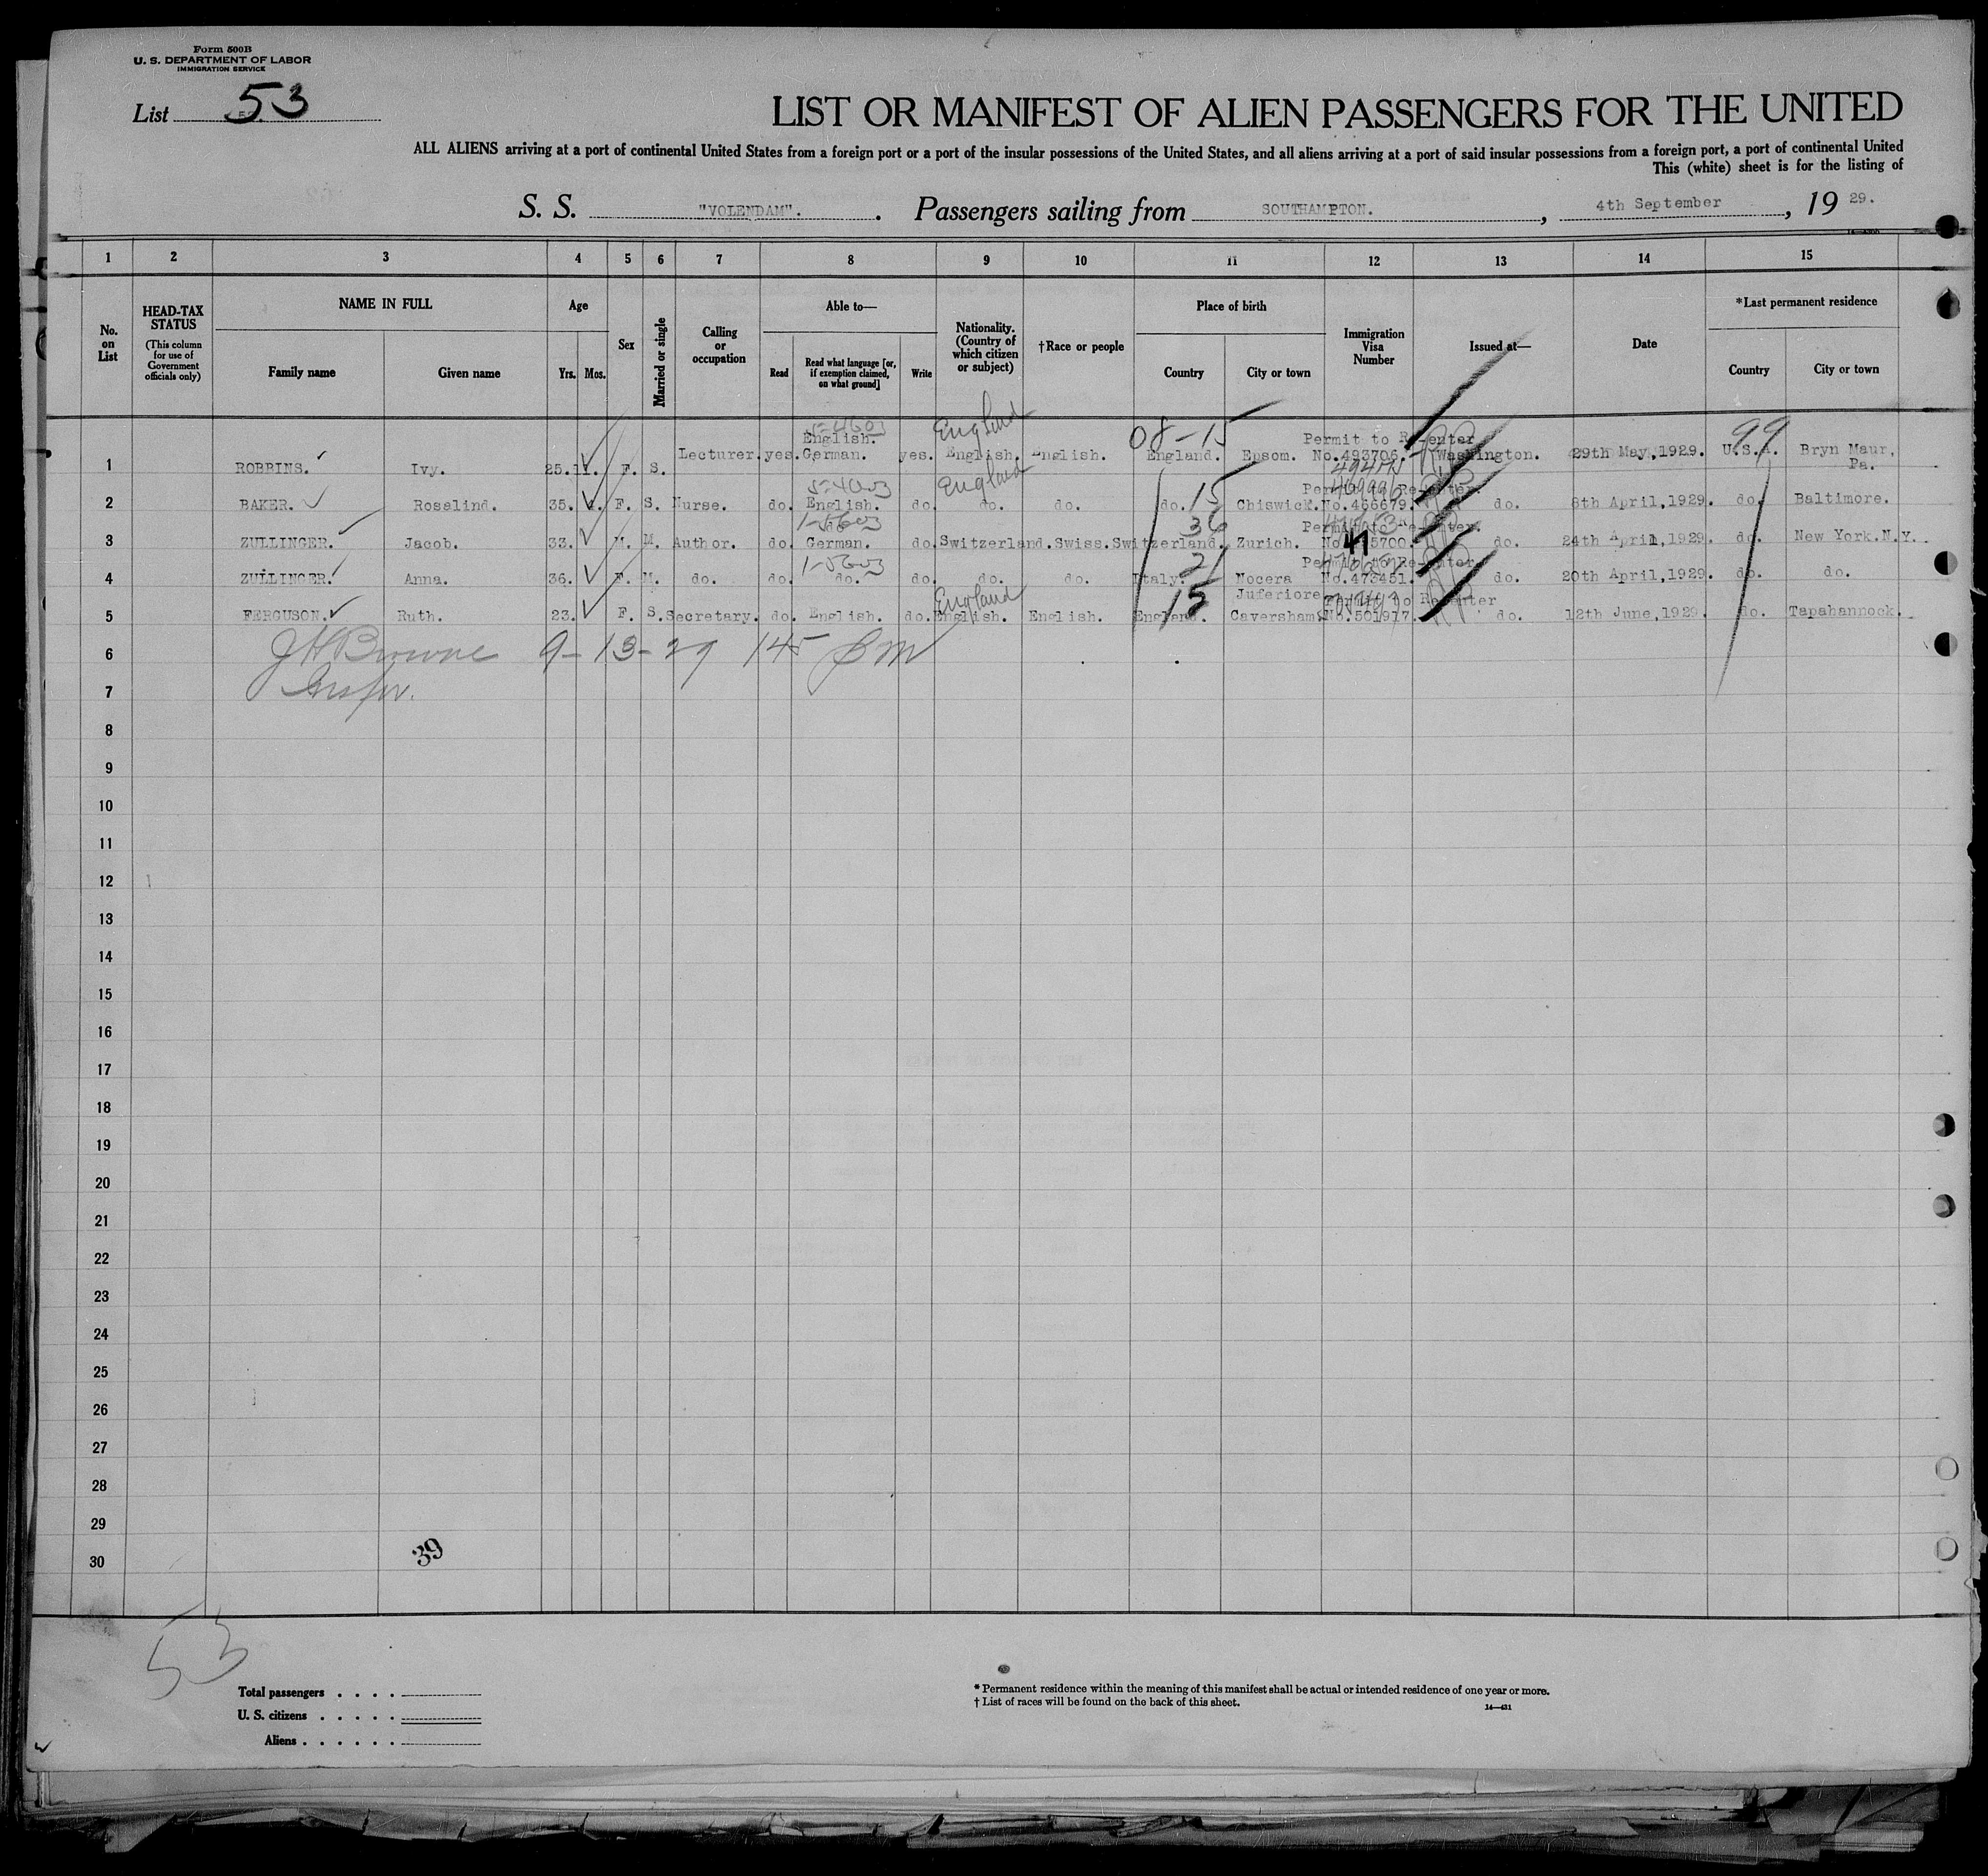 Form 500B
U. S. DEPARTMENT OF LABOR
IMMIGRATION SERVICE
List 53
LIST OR MANIFEST OF ALIEN PASSENGERS FOR THE UNITED
ALL ALIENS arriving at a port of continental United States from a foreign port or a port of the insular possessions of the United States, and all aliens arriving at a port of said insular possessions from a foreign port, a port of continental United
This (white) sheet is for the listing of
S. S. "VOLENDAM". . Passengers sailing from SOUTHAMPTON. , 4th September , 19 29.
1 2 3 4 5 6 7 8 9 10 11 12 13 14 15
No. on List
HEAD-TAX STATUS
(This column for use of Government officials only)
NAME IN FULL
Family name Given name
Age
Yrs. Mos.
Sex
Married or single
Calling or occupation
Able to—
Read Read what language [or, if exemption claimed, on what ground] Write
Nationality. (Country of which citizen or subject)
†Race or people
Place of birth
Country City or town
Immigration Visa Number
Issued at—
Date
*Last permanent residence
Country City or town
5-4603 England 08-15 99
English. Permit to Re-enter
1 ROBBINS. Ivy. 25. 11. F. S. Lecturer. yes. German. yes. English. English. England. Epsom. No.493706. Washington. 29th May, 1929. U.S.A. Bryn Maur, Pa.
5-4603 England 15
Permit to Re-enter
2 BAKER. Rosalind. 35. F. S. Nurse. do. English. do. do. do. do. Chiswick. No.466679. do. 8th April, 1929. do. Baltimore.
1-5603 36
Permit to Re-enter
3 ZULLINGER. Jacob. 33. M. M. Author. do. German. do. Switzerland. Swiss. Switzerland. Zurich. do. 24th April, 1929. do. New York. N.Y.
1-5603 21
Permit to Re-enter
4 ZULLINGER. Anna. 36. F. M. do. do. do. do. do. do. Italy. Nocera Juferiore No.473451. do. 20th April, 1929. do. do.
England 15
Permit to Re-enter
5 FERGUSON. Ruth. 23. F. S. Secretary. do. English. do. English. English. England. Caversham. No.501917. do. 12th June, 1929. do. Tapahannock.
6 JH Browne 9-13-29 145 PM
7 Inspr.
8
9
10
11
12
13
14
15
16
17
18
19
20
21
22
23
24
25
26
27
28
29
30
39
53
Total passengers . . . .
U. S. citizens . . . . .
Aliens . . . . . .
* Permanent residence within the meaning of this manifest shall be actual or intended residence of one year or more.
† List of races will be found on the back of this sheet.
14—431